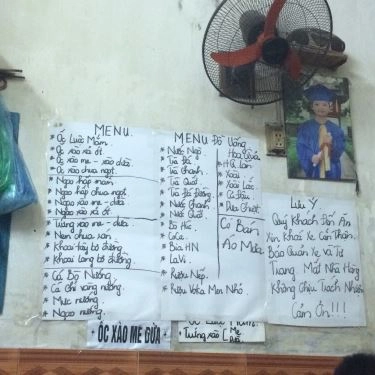 MENU.
* Ốc Luộc Mắm.
* Ốc xào xả ớt.
* Ốc xào me - xào dừa.
* Ốc xào chua ngọt.
* Ngao hấp mắm.
* Ngao hấp chua ngọt.
* Ngao xào me - dừa.
* Ngao xào xả ớt
* Tương xào me - dừa.
* Nem chua rán.
* Khoai tây bò đường.
* Khoai lang bò đường.
* Cá Bò Nướng.
* Cá chỉ vàng nướng.
* Mực nướng.
* Ngao nướng.
MENU Đồ Uống.
* Nước Nếp
* Trà Đá
* Trà Chanh.
* Trà Quất
* Trà Đá Đường
* Nước Chanh
* Nước Quất.
* Bò Húc
* CoCa
* Bia HN
* LaVi.
* Rượu Nếp.
* Rượu Voka Men Nhỏ.
Hoa Quả
* Củ Đậu
* Dưa Chuột.
Có Bán
Áo Mưa
Lưu Ý.
Quý Khách Đồ Ăn
Xin Khoá Xe Cẩn Thận.
Bảo Quản Xe Và Tư
Trang Mất Nhà Hàng
Không Chịu Trách Nhiệm
Cảm Ơn!!!
* ỐC XÀO ME DỪA *
Tương xào
Me
Dừa